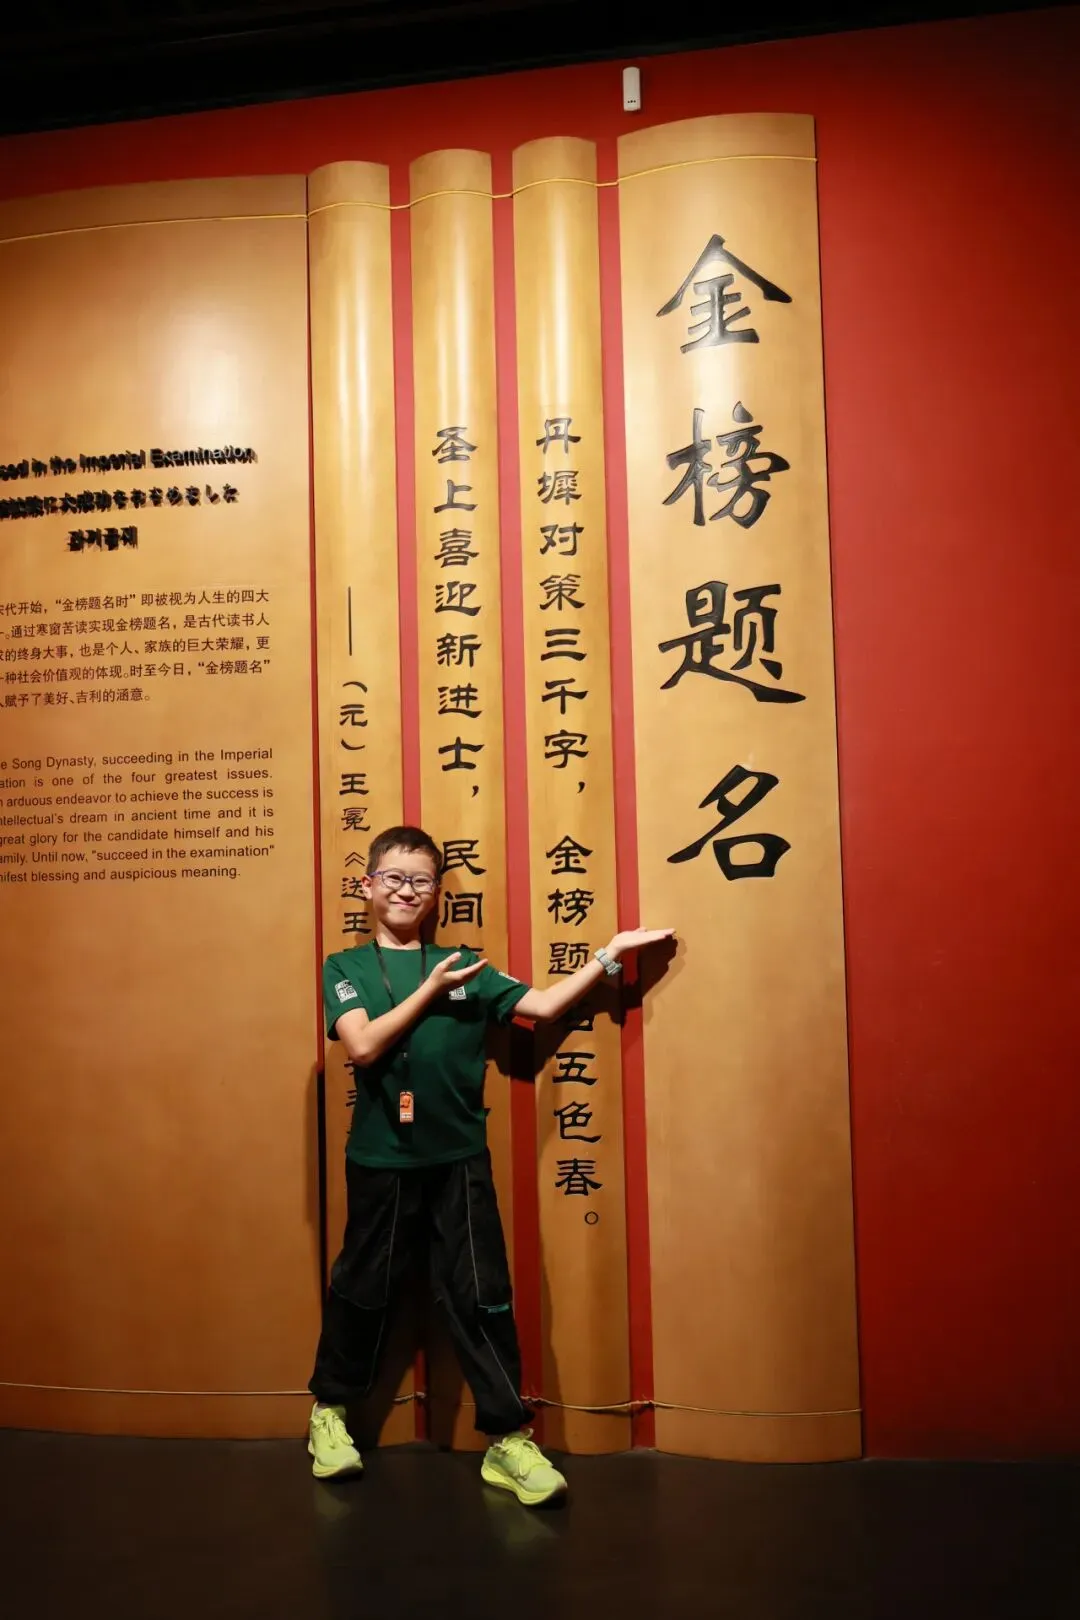 金榜题名
丹墀对策三千字，金榜题名五色春。
圣上喜迎新进士，民间
——（元）王冕《送王
in the Imperial Examination
大成功をおさめました
과거급제
代开始，“金榜题名时”即被视为人生的四大
。通过寒窗苦读实现金榜题名，是古代读书人
的终身大事，也是个人、家族的巨大荣耀，更
种社会价值观的体现。时至今日，“金榜题名”
赋予了美好、吉利的涵意。
Song Dynasty, succeeding in the Imperial
is one of the four greatest issues.
arduous endeavor to achieve the success is
intellectual's dream in ancient time and it is
great glory for the candidate himself and his
family. Until now, "succeed in the examination"
blessing and auspicious meaning.